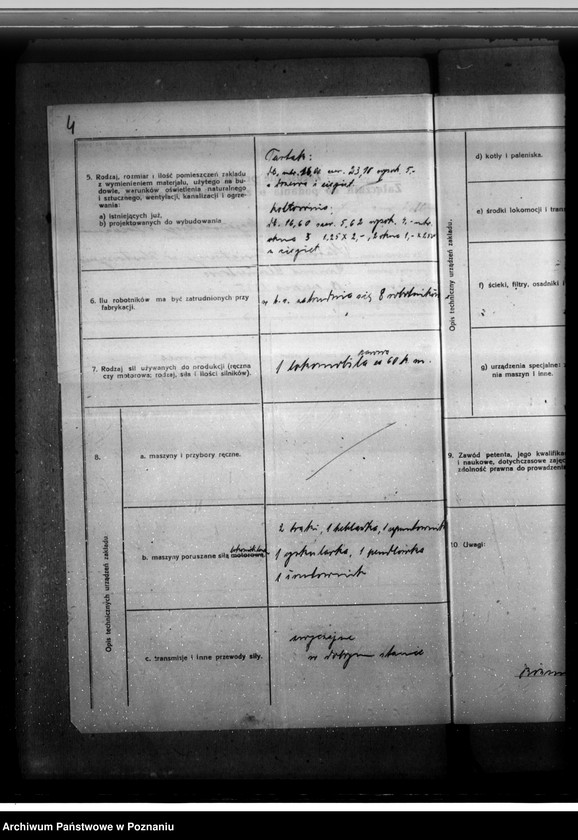 4
5. Rodzaj, rozmiar i ilość pomieszczeń zakładu
z wymienieniem materjału, użytego na bu-
dowie, warunków oświetlenia naturalnego
i sztucznego, wentylacji, kanalizacji i ogrze-
wania:
a) istniejących już,
b) projektowanych do wybudowania
Tartak:
szer. 23,10 wysok. 5.-
z drzewa i cegieł.
kotłownia:
dł. 16,60 szer. 5,62 wysok.
okna 3 1,25 X 2,-, 2 okna 1,-
z cegieł
6. Ilu robotników ma być zatrudnionych przy
fabrykacji.
w b.r. zatrudnia się 8 robotników
7. Rodzaj sił używanych do produkcji (ręczna
czy motorowa; rodzaj, siła i ilości silników).
parowa
1 lokomobila o 60 k.m.
8.
Opis technicznych urządzeń zakładu
a. maszyny i przybory ręczne.
b. maszyny poruszane siłą motorową
2 traki, 1 heblarka,
1 cyrkularka, 1 pendlówka
1
c. transmisje i inne przewody siły.
zwyczajne
w dobrym stanie
Opis techniczny urządzeń zakładu.
d) kotły i paleniska.
e) środki lokomocji i tran
f) ścieki, filtry, osadniki i
g) urządzenia specjalne:
nia maszyn i inne.
9. Zawód petenta, jego kwalifika
i naukowe, dotychczasowe zajęc
zdolność prawna do prowadzenia
10 Uwagi:
Archiwum Państwowe w Poznaniu